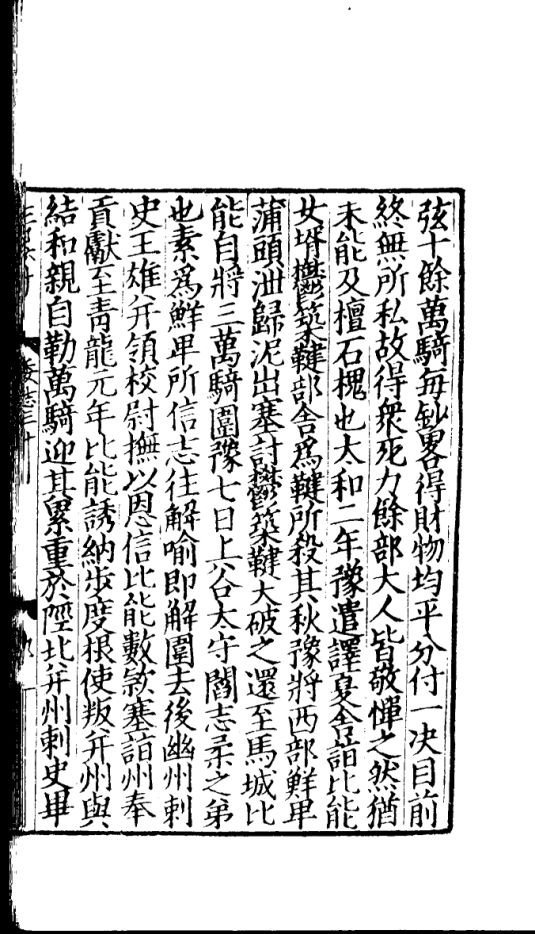 弦十餘萬騎毎鈔畧得財物均平分付一决目前
終無所私故得衆死力餘部大人皆敬憚之然猶
未能及檀石槐也太和二年豫遣譯夏舍詣比能
女壻鬱築鞬部舍爲鞬所殺其秋豫將西部鮮卑
蒲頭泄歸泥出塞討鬱築鞬大破之還至馬城比
能自將三萬騎圍豫七日上谷太守閻志柔之弟
也素爲鮮卑所信志往解喻即解圍去後幽州刺
史王雄并領校尉撫以恩信比能數款塞詣州奉
貢獻至靑龍元年比能誘納步度根使叛并州與
結和親自勒萬騎迎其累重於陘北并州刺史畢